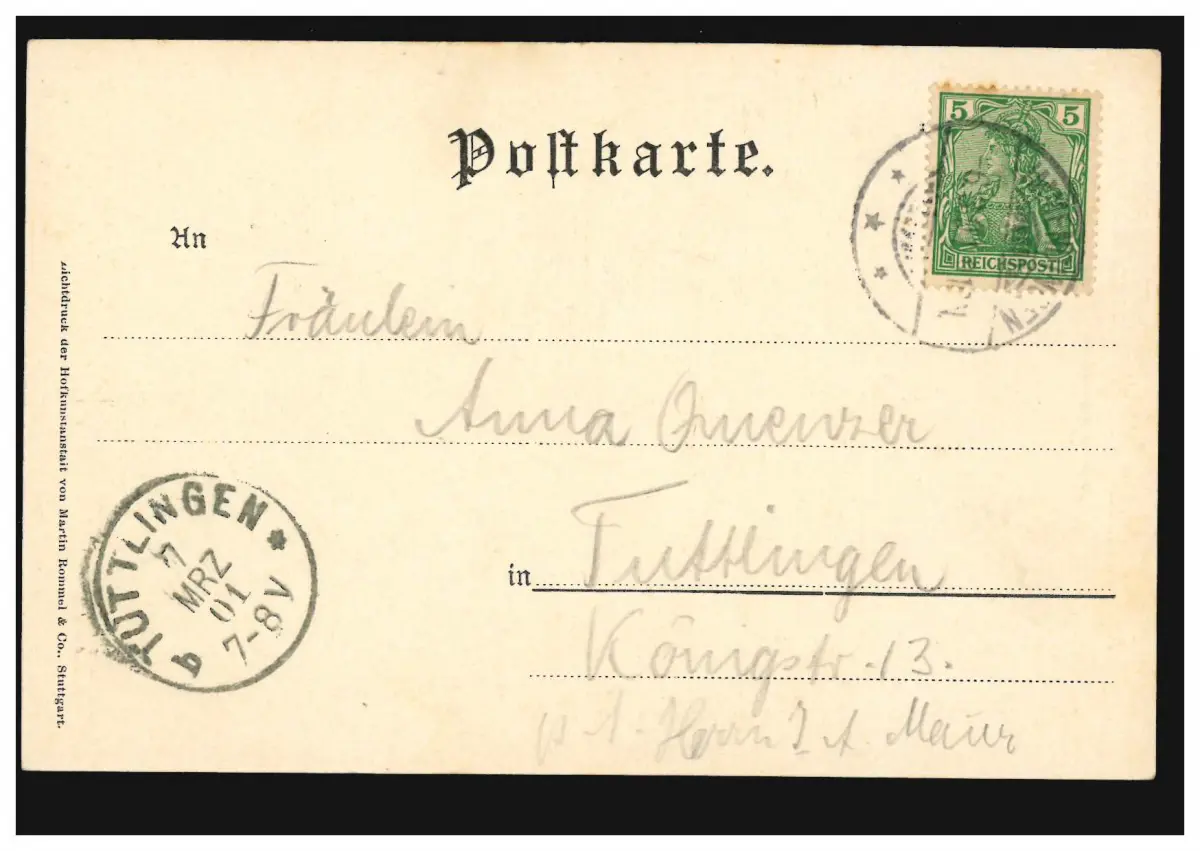 Postkarte.
5 5
REICHSPOST
An
Fräulein
Anna
in Tuttlingen
Königstr. 13.
p. A. Herrn J. A. Maur
TUTTLINGEN
7
MRZ
01
7-8V
b
Lichtdruck der Hofkunstanstalt von Martin Rommel & Co., Stuttgart.